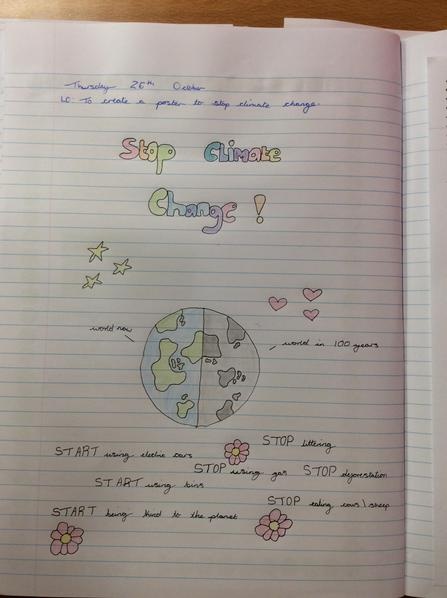 Thursday 26th October
LO: To create a poster to stop climate change.
Stop Climate
Change!
world now
world in 100 years
START using electric cars
STOP littering
STOP using gas
STOP deforestation
START using bins
STOP eating cows \ sheep
START being kind to the planet